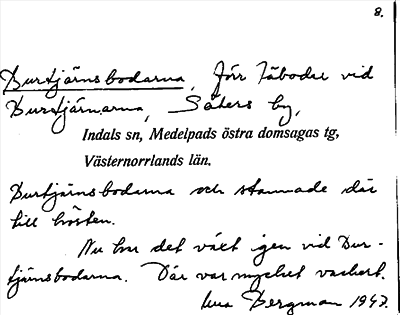 8.
Durtjärnsbodarna, förr fäbodar vid
Durtjärnarna, Säters by,
Indals sn, Medelpads östra domsagas tg,
Västernorrlands län.
Durtjärnsbodarna och stannade där
till hösten.
Nu har det växt igen vid Dur-
tjärnsbodarna. Där var mycket vackert.
Bergman 1947.